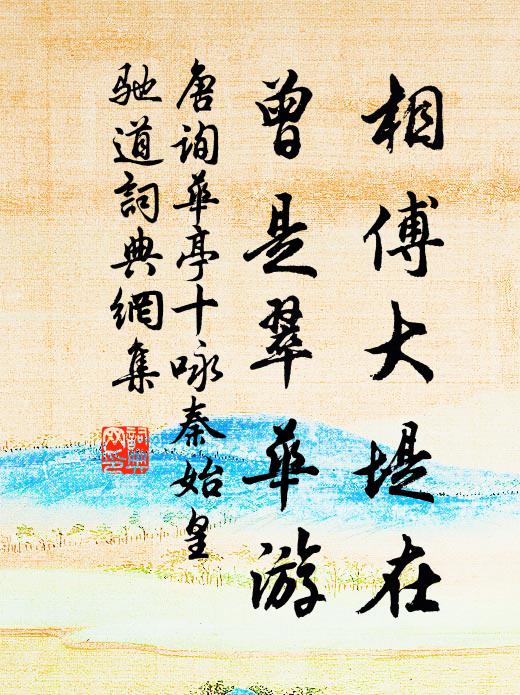 相傅大堤在
曾是翠華游
唐詢華亭十咏秦始皇
馳道詞典網集